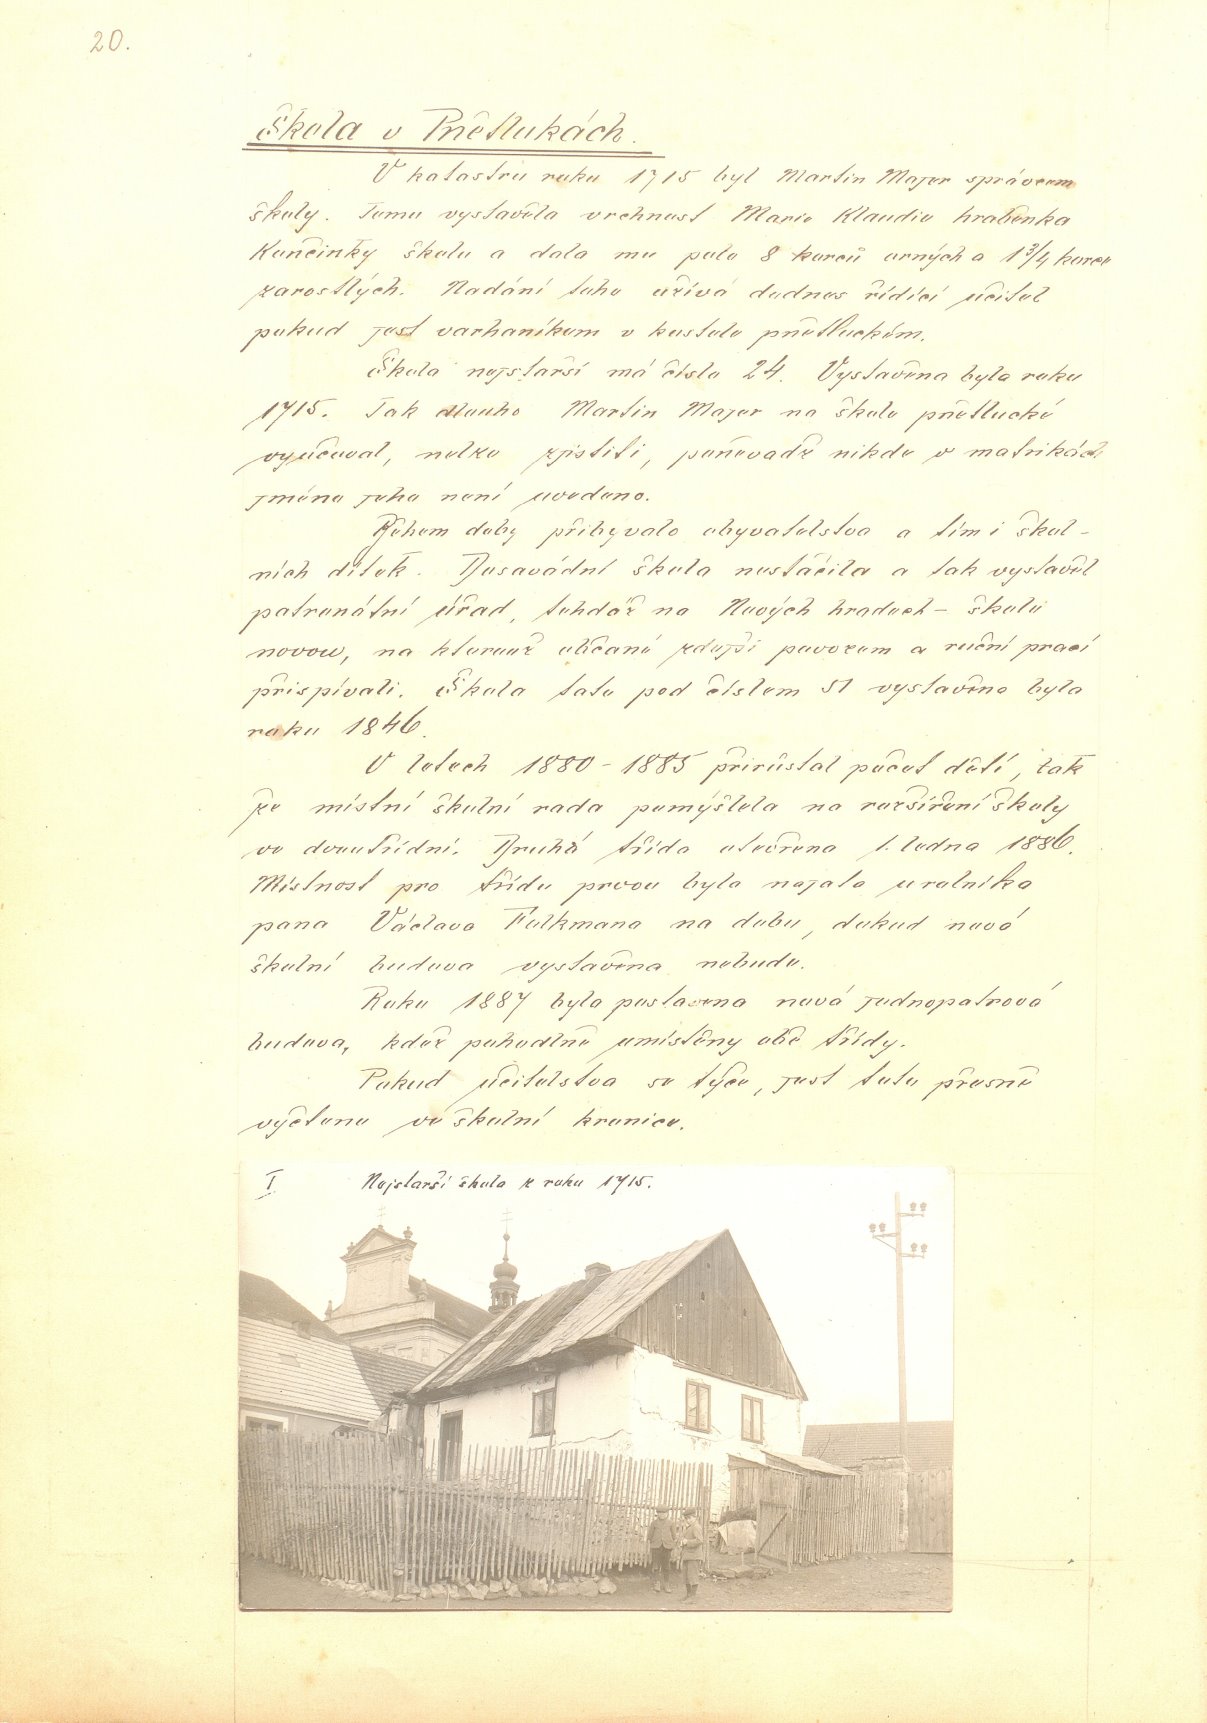 20.
Škola v Pnětlukách.
V katastru roku 1715 byl Martin Major správcem
školy. Tomu vystavěla vrchnost Marie Klaudie hraběnka
Končinky školu a dala mu pole 8 korců orných a 1 3/4 korce
zarostlých. Nadání toho užívá dodnes řídící učitel
pokud jest varhaníkem v kostele pnětluckém.
Škola nejstarší má číslo 24. Vystavěna byla roku
1715. Jak dlouho Martin Major na škole pnětlucké
vyučoval, nelze zjistiti, poněvadž nikde v matrikách
jméno jeho není uvedeno.
Během doby přibývalo obyvatelstva a tím i škol-
ních dítek. Dosavádní škola nestačila a tak vystavěl
patronátní úřad, tehdáž na Nových hradech - školu
novou, na kterouž občané zdejší povozem a ruční prací
přispívali. Škola tato pod číslem 51 vystavěna byla
roku 1846.
V letech 1880 - 1885 přirůstal počet dětí, tak
že místní školní rada pomýšlela na rozšíření školy
ve dvoutřídní. Druhá třída otevřena 1. ledna 1886.
Místnost pro třídu prvou byla najata u rolníka
pana Václava Folkmana na dobu, dokud nová
školní budova vystavěna nebude.
Roku 1887 byla postavena nová jednopatrová
budova, kdež pohodlně umístěny obě třídy.
Pokud učitelstva se týče, jest toto přesně
výčteno ve školní kronice.
I Nejstarší škola z roku 1715.